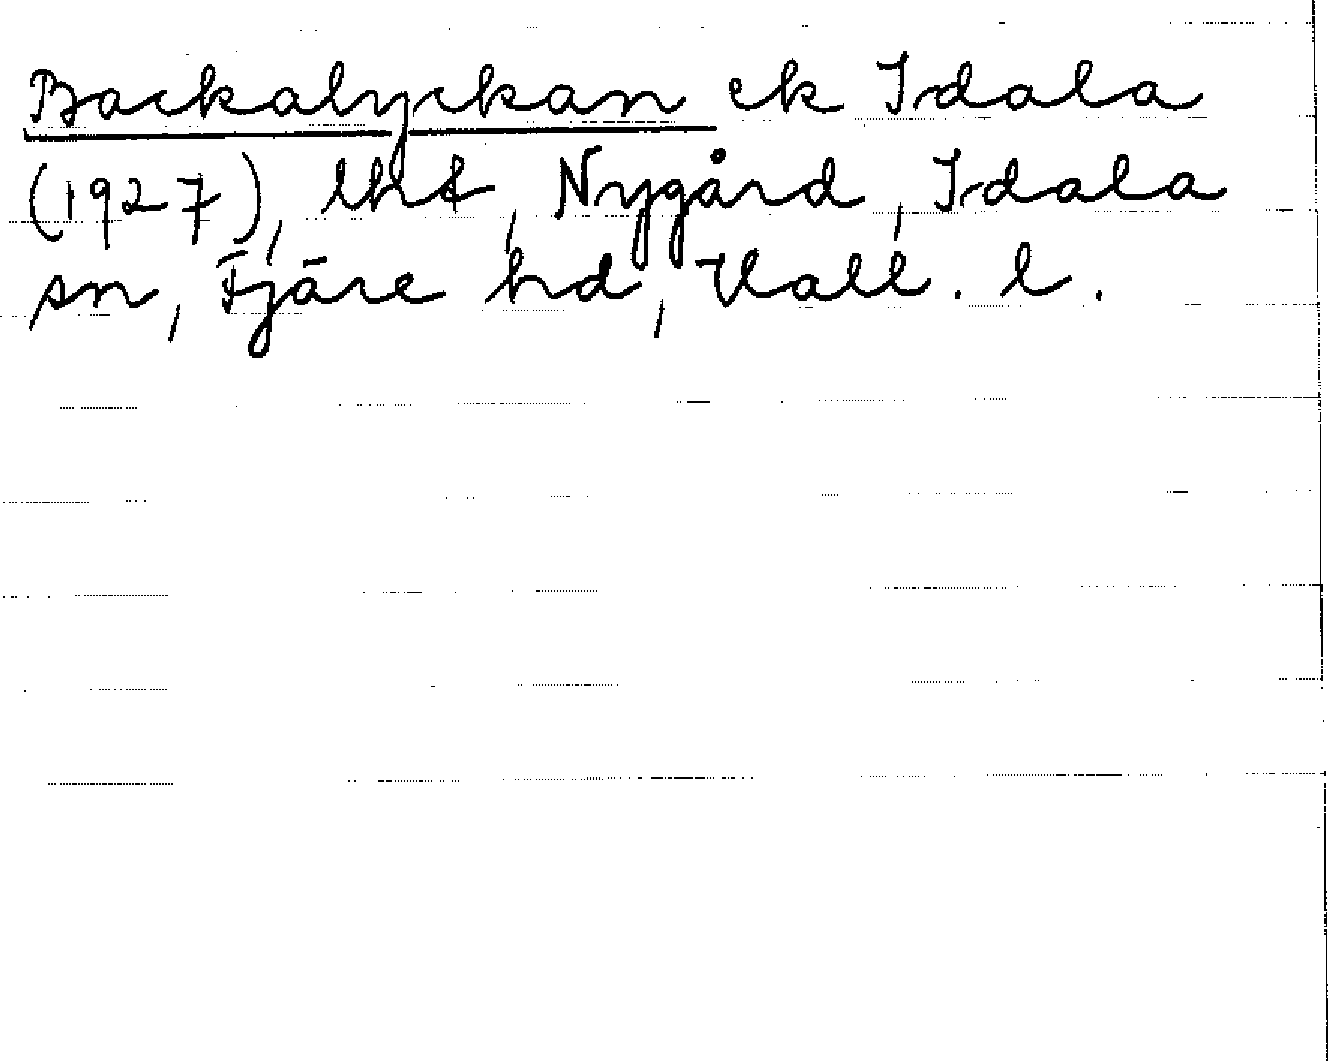 Backalyckan ek Idala
(1927), lht, Nygård, Idala
sn, Fjäre hd, Hall. l.